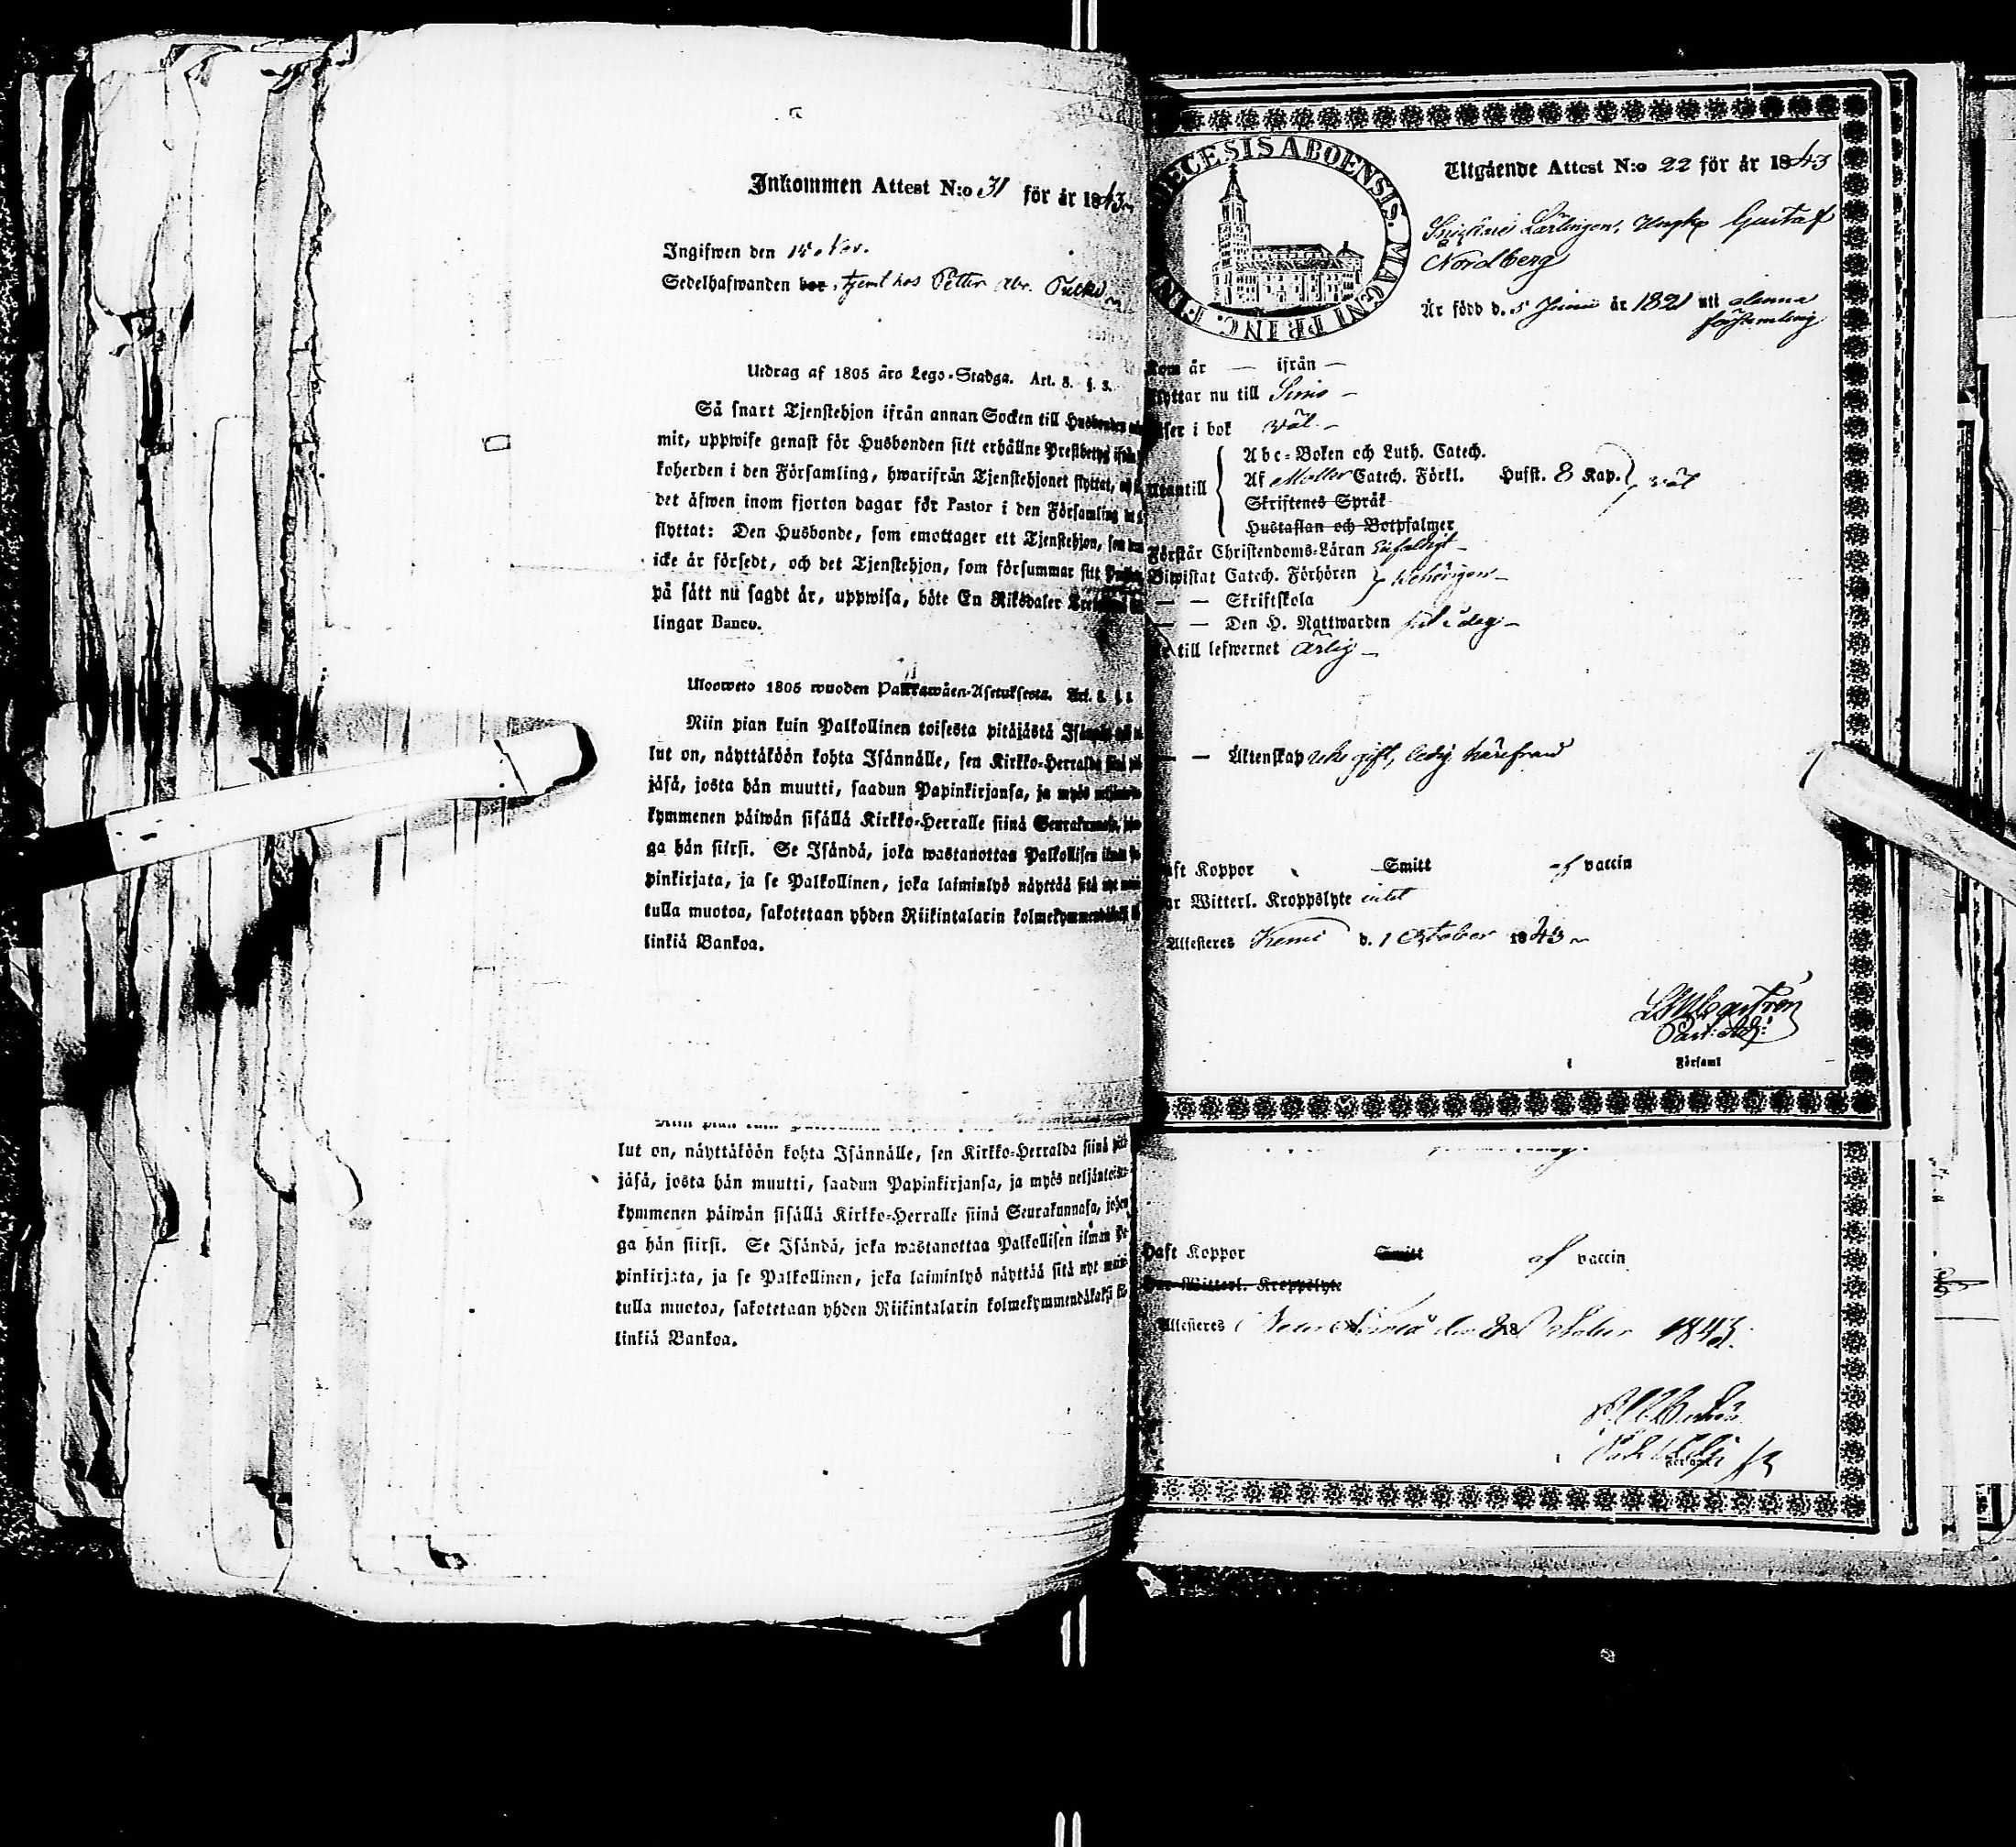 Inkommen Attest N:o 31 för år 1843
Ingifwen den 15 Nov.
Sedelhafwanden bor, tjenst hos Petter
Utdrag af 1805 års Lego-Stadga. Art. 8. §. 3.
Så snart Tjenstehjon ifrån annan Socken till Husbonden
mit, uppwise genast för Husbonden sitt erhållne Prestbetyg ifrån
koherden i den Församling, hwarifrån Tjenstehjonet flyttat, och
det äfwen inom fjorton dagar för Pastor i den Församling
flyttat: Den Husbonde, som emottager ett Tjenstehjon, som
icke är försedt, och det Tjenstehjon, som försummar sitt
på sätt nu sagdt är, uppwisa, böte En Riksdaler
lingar Banco.
Ulosweto 1805 wuoden Palkkawäen-Asetuksesta. Art. 8. §
Niin pian kuin Palkollinen toisesta pitäjästä
lut on, näyttäköön kohta Isännälle, sen Kirkko-Herralda siinä
jäsä, josta hän muutti, saadun Papinkirjansa, ja myös
kymmenen päiwän sisällä Kirkko-Herralle siinä Seurakunnasa,
ga hän siirsi. Se Isändä, joka wastanottaa Palkollisen ilman
pinkirjata, ja se Palkollinen, joka laiminlyö näyttää sitä nyt
tulla muotoa, sakotetaan yhden Riikintalarin kolmekymmendäkaksi
linkiä Bankoa.
lut on, näyttäköön kohta Isännälle, sen Kirkko-Herralda siinä
jäsä, josta hän muutti, saadun Papinkirjansa, ja myös neljäntois
kymmenen päiwän sisällä Kirkko-Herralle siinä Seurakunnasa, johon
ga hän siirsi. Se Isändä, joka wastanottaa Palkollisen ilman
pinkirjata, ja se Palkollinen, joka laiminlyö näyttää sitä nyt
tulla muotoa, sakotetaan yhden Riikintalarin kolmekymmendäkaksi
linkiä Bankoa.
ECESIS ABOENSIS. MAGNI PRINC. FIN
Utgående Attest N:o 22 för år 1843
Lärlingen, Ungk. Gustaf
Nordberg
Är född d. 5 Junii år 1821 uti denna
församling
Kom år — ifrån —
flyttar nu till Simo —
äser i bok wäl —
Utantill
Abc-Boken och Luth. Catech.
Af Möller Catech. Förkl. Husst. 8 Kap. wäl
Skriftenes Språk
Hustaflan och Botpsalmer
Förstår Christendoms-Läran enfaldigt —
Biwistat Catech. Förhören behörigen —
— — Skriftskola
— — Den H. Nattwarden i dag —
till lefwernet ärlig —
— — Äktenskap icke gift, ledig härifrån
aft Koppor Smitt af vaccin
ar Witterl. Kroppslyte intet
Attesteres Kemi d. 1 October 1843
Past. Adj.
Församl
Haft Koppor Smitt af vaccin
Witterl. Kroppslyte
Attesteres October 1843.